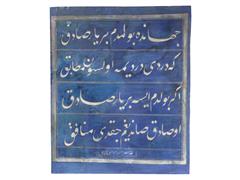 جهانده بولمدم بر یار صادق
که دردی دردیمه اولسون مطابق
اگر بولدم ایسه بر یار صادق
او صادق صاندیغم چقدی منافق